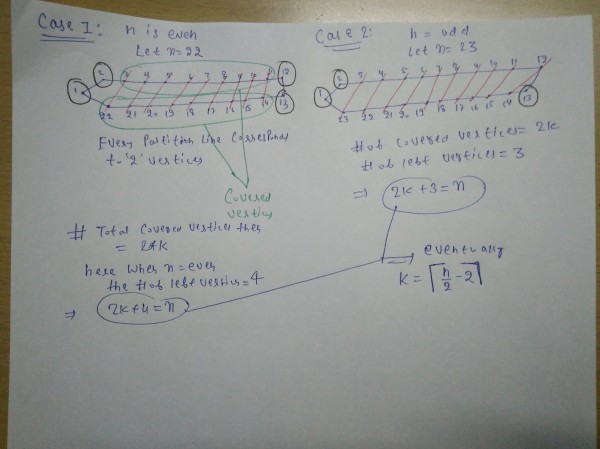 Case 1: n is even
Let n=22
Case 2: n = odd
Let n=23
2 3 4 5 6 7 8 9 10 11 12
1
22 21 20 19 18 17 16 15 14 13
2 3 4 5 6 7 8 9 10 11 12
1
23 22 21 20 19 18 17 16 15 14 13
Every Partition line Corresponds
to '2' vertices
Covered
vertices
# of covered vertices = 2k
# of left vertices = 3
⇒ 2k+3=n
# Total Covered vertices then
= 2*k
here when n=even
the # of left vertices=4
⇒ 2k+4=n
⇒ eventually
k = ⌈n/2 - 2⌉